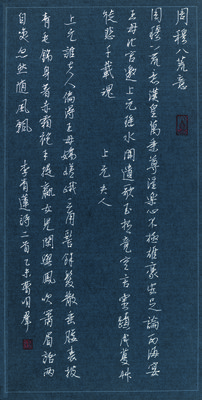 周穆八荒意
周穆八荒意漢皇萬乘尊淫樂心不極雄豪安足論西海宴
王母北宮邀上元瑤水聞遺歌玉杯竟空言靈蹟成蔓草
徒悲千載魂 上元夫人
上元誰夫人偏得王母嬌嵯峨三角髻餘髮散垂腰裘披
青毛錦身著赤霜袍手提嬴女兒閑與鳳吹簫眉語兩
自笑忽然隨風飄 李青蓮詩二首乙未